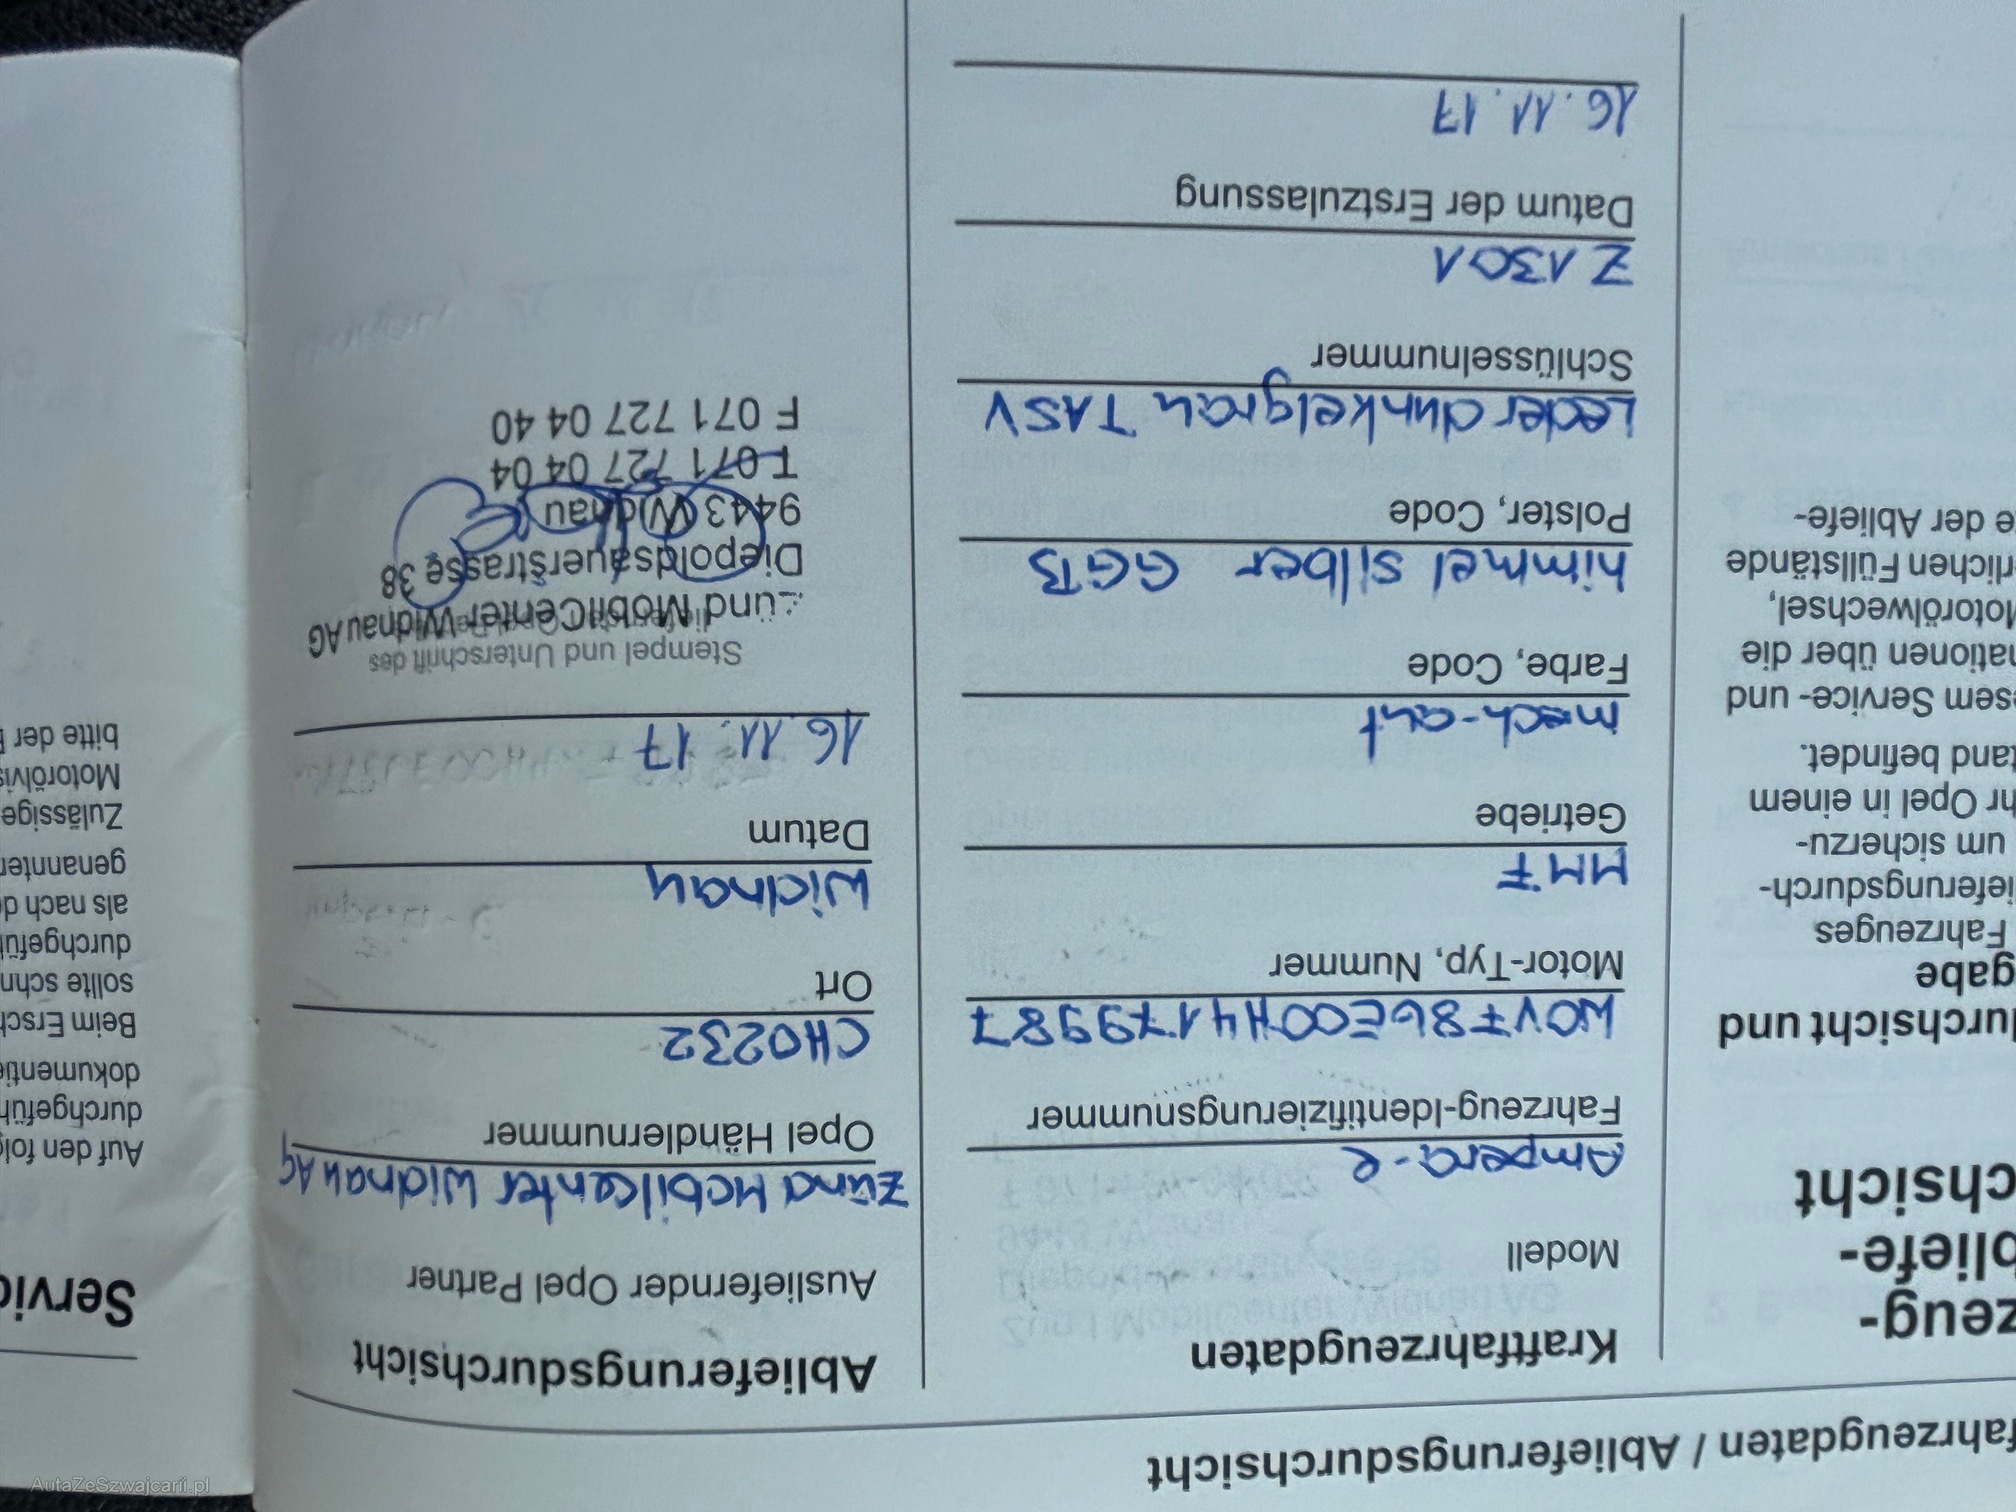 fahrzeugdaten / Ablieferungsdurchsicht
zeug-
bliefe-
chsicht
durchsicht und
gabe
Fahrzeuges
lieferungsdurch-
um sicherzu-
hr Opel in einem
tand befindet.
esem Service- und
nationen über die
Motorölwechsel,
rlichen Füllstände
e der Abliefe-
Kraftfahrzeugdaten
Modell
Ampera-e
Fahrzeug-Identifizierungsnummer
W0VF86E00H4179987
Motor-Typ, Nummer
MMF
Getriebe
mech-aut
Farbe, Code
himmel silber GGB
Polster, Code
Leder dunkelgrau TASV
Schlüsselnummer
Z1301
Datum der Erstzulassung
16.11.17
Ablieferungsdurchsicht
Ausliefernder Opel Partner
Zünd Mobilcenter Widnau AG
Opel Händlernummer
CH0232
Ort
Widnau
Datum
16.11.17
Stempel und Unterschrift des
ünd MobilCenter Widnau AG
Diepoldsauerstrasse 38
9443 Widnau
T 071 727 04 04
F 071 727 04 40
Servic
Auf den folg
durchgefüh
dokumentie
Beim Ersch
sollte schn
durchgefüh
als nach de
genannten
Zulässige
Motorölvis
bitte der B
AutaZeSzwajcarii.pl